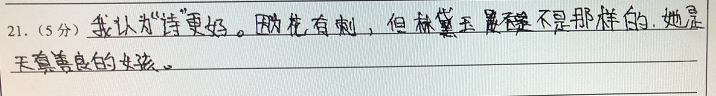 21.(5分) 我认为“诗”更好。因为花有刺，但林黛玉不是那样的.她是
天真善良的女孩。